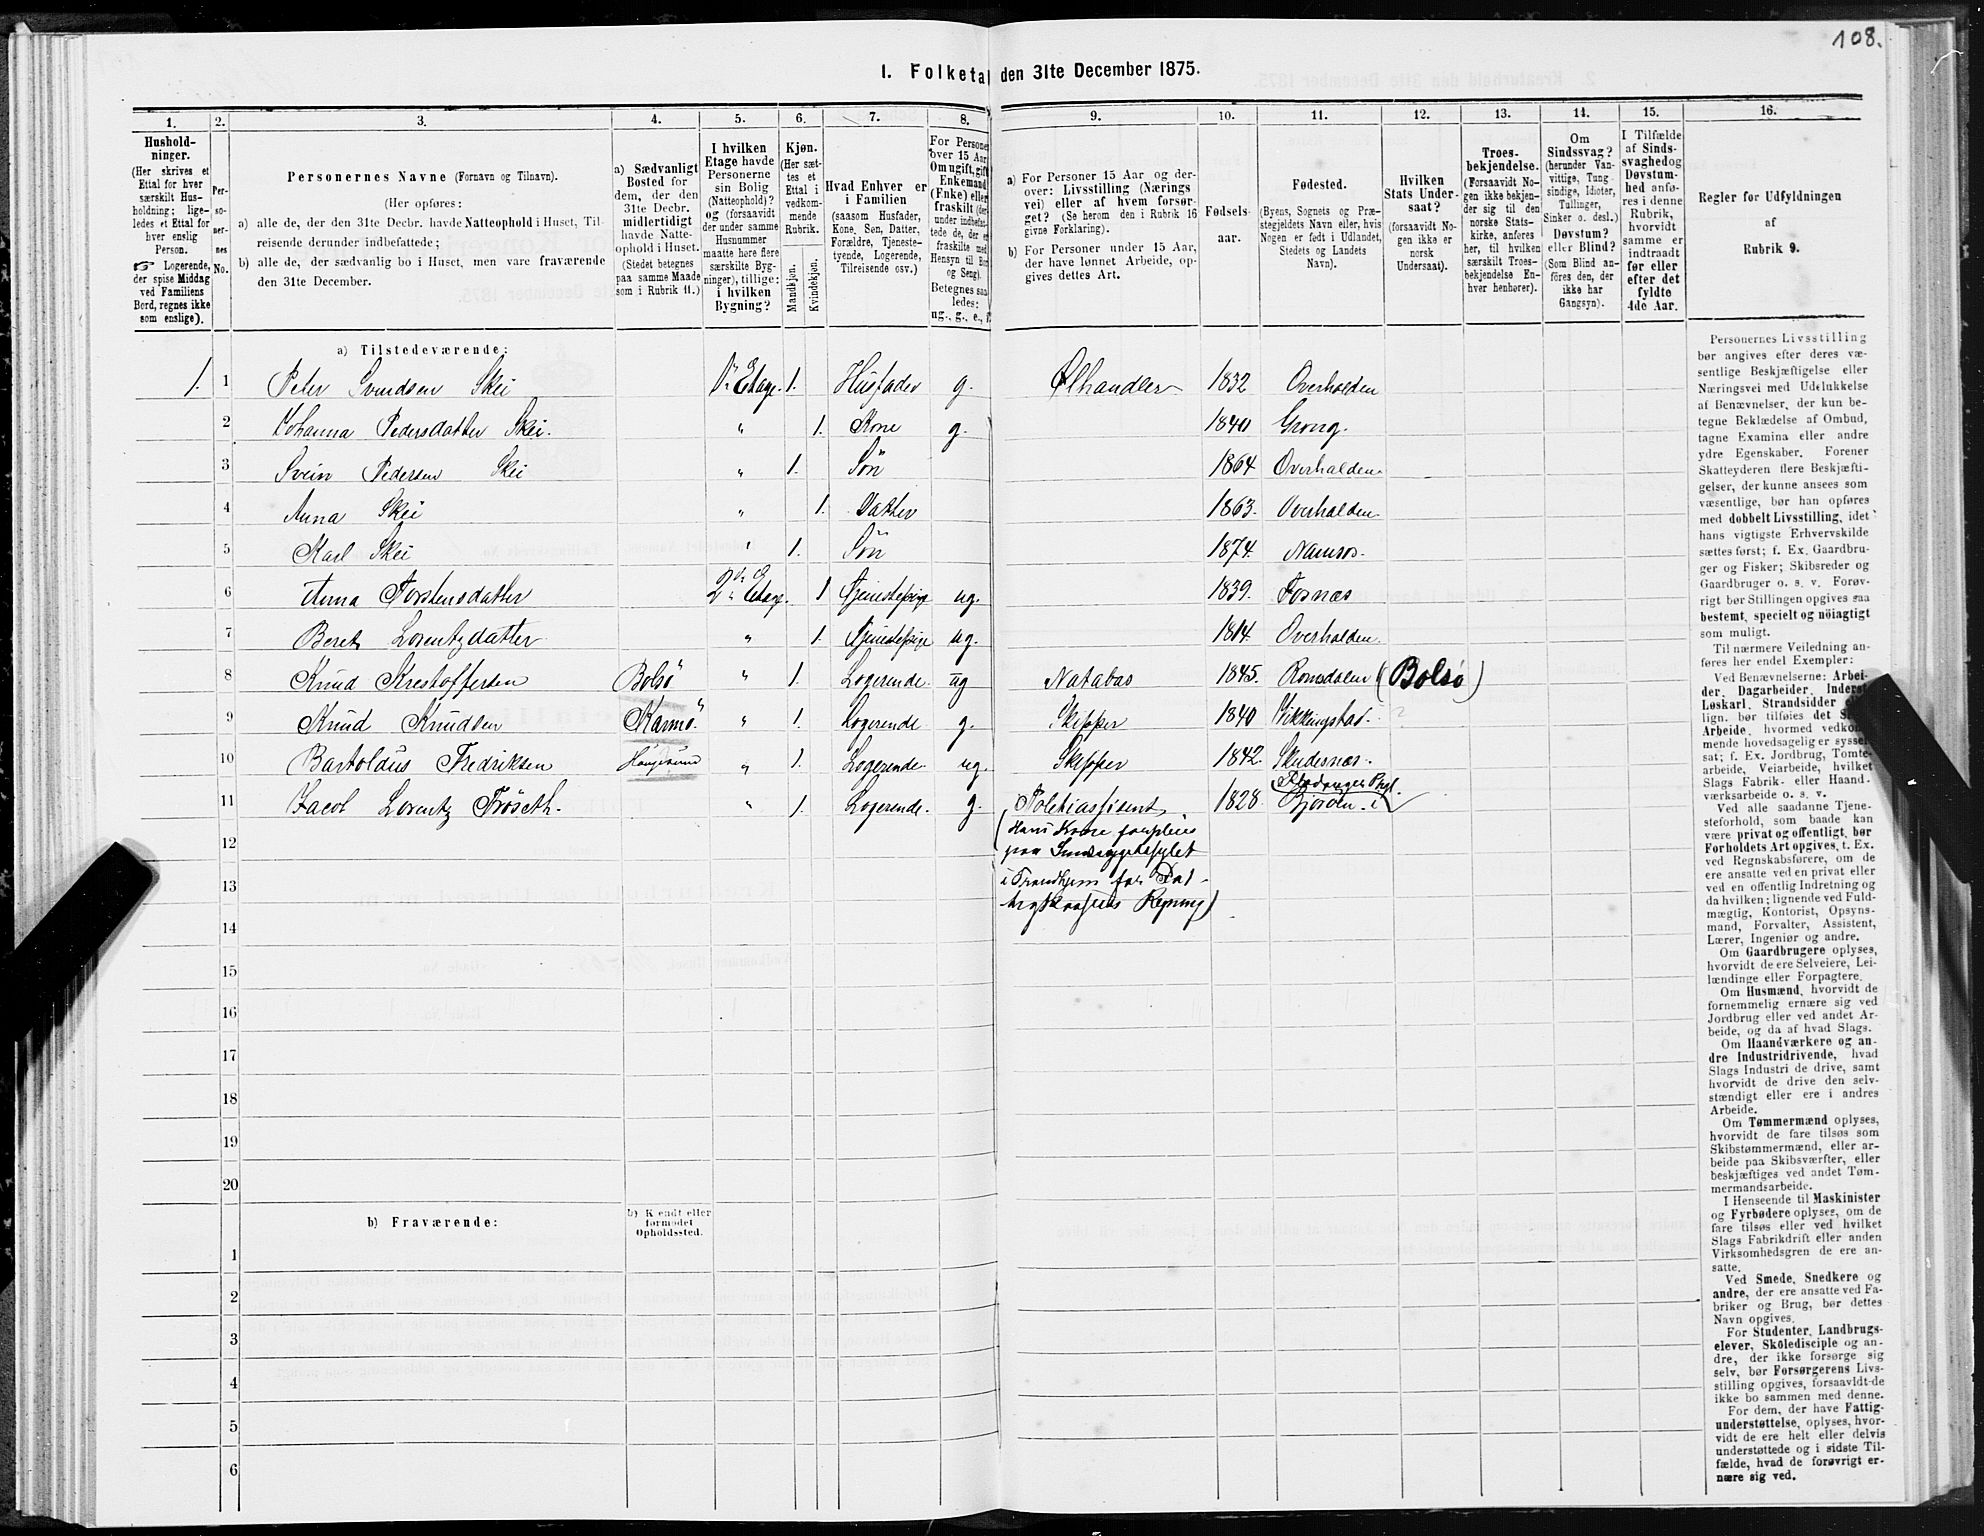 108.
1. Folketal den 31te December 1875.
1. 2. 3. 4. 5. 6. 7. 8. 9. 10. 11. 12. 13. 14. 15. 16.
Hushold-
ninger.
(Her skrives et
Ettal for hver
særskilt Hus-
holdning; lige-
ledes et Ettal for
hver enslig
Person.
☞ Logerende,
der spise Middag
ved Familiens
Bord, regnes ikke
som enslige).
Per-
so-
ner-
nes
No.
Personernes Navne (Fornavn og Tilnavn).
(Her opføres:
a) alle de, der den 31te Decbr. havde Natteophold i Huset, Til-
reisende derunder indbefattede;
b) alle de, der sædvanlig bo i Huset, men vare fraværende
den 31te December.
a) Sædvanligt
Bosted for
dem, der den
31te Decbr.
midlertidigt
havde Natte-
ophold i Huset.
(Stedet betegnes
paa samme Maade
som i Rubrik 11.)
I hvilken
Etage havde
Personerne
sin Bolig
(Natteophold)?
og (forsaavidt
der under samme
Husnummer
maatte høre flere
særskilte Byg-
ninger), tillige:
i hvilken
Bygning?
Kjøn.
(Her sæt-
tes et
Ettal i
vedkom-
mende
Rubrik.
Mandkjøn.
Kvindekjøn.
Hvad Enhver er
i Familien
(saasom Husfader,
Kone, Søn, Datter,
Forældre, Tjeneste-
tyende, Logerende,
Tilreisende osv.)
For Personer
over 15 Aar
Om ugift, gift
Enkemand
(Enke) eller
fraskilt (der-
under indbefat-
tede de, der er
fraskilte med
Hensyn til Bord
og Seng).
Betegnes saa-
ledes:
ug., g., e., f.
a) For Personer 15 Aar og der-
over: Livsstilling (Nærings
vei) eller af hvem forsør-
get? (Se herom den i Rubrik 16
givne Forklaring).
b) For Personer under 15 Aar,
der have lønnet Arbeide, op-
gives dettes Art.
Fødsels-
aar.
Fødested.
(Byens, Sognets og Præ-
stegjeldets Navn eller, hvis
Nogen er født i Udlandet,
Stedets og Landets
Navn).
Hvilken
Stats Under-
saat?
(forsaavidt No-
gen ikke er
norsk
Undersaat).
Troes-
bekjendelse.
(Forsaavidt No-
gen ikke bekjen-
der sig til den
norske Stats-
kirke, anføres
her, til hvilken
særskilt Troes-
bekjendelse En-
hver henhører).
Om
Sindssvag?
(herunder Van-
vittige, Tung-
sindige, Idioter,
Tullinger,
Sinker o. desl.)
Døvstum?
eller Blind?
(Som Blind an-
føres den, der
ikke har
Gangsyn).
I Tilfælde
af Sinds-
svaghed og
Døvstum-
hed anfø-
res i denne
Rubrik,
hvorvidt
samme er
indtraadt
før eller
efter det
fyldte
4de Aar.
Regler for Udfyldningen
af
Rubrik 9.
a) Tilstedeværende:
1. 1 Peter Svendsen Skei 1ste Etage 1. Husfader g. Ølhandler 1832 Overhalden
2 Johanna Pedersdatter Skei. " 1. Kone g. 1840 Grong.
3 Svein Pedersen Skei " 1. Søn 1864 Overhalden
4 Anna Skei " 1. Datter 1863. Overhalden
5 Karl Skei " 1. Søn 1874. Namsos.
6 Anna Torstensdatter 2den Etage. 1 Tjenestepige ug. 1839. Fosnæs
7 Beret Lorentzdatter " 1. Tjenestepige ug. 1814. Overhalden.
8 Knud Kristoffersen Bolsö " 1. Logerende. ug Natabas 1845. Romsdalen (Bolsø)
9 Knud Knudsen Karmö. " 1. Logerende g. Skipper 1840 Vikkingstad. ?
10 Bartoldus Fredriksen Haugesund " 1. Logerende ug. Skipper 1842. Skudernæs.
11 Jacob Lorentz Fröseth. " 1. Logerende. g. Politibetjent 1828 Bjørøen i
12 (Hans Kone forpleies
paa Sindssygeasylet
13 i Trondhjem for
Regning)
14
15
16
17
18
19
20
b) Fraværende:
b) Kjendt eller
formodet
Opholdssted.
1
2
3
4
5
6
Personernes Livsstilling
bør angives efter deres væ-
sentlige Beskjæftigelse eller
Næringsvei med Udelukkelse
af Benævnelser, der kun be-
tegne Beklædelse af Ombud,
tagne Examina eller andre
ydre Egenskaber. Forener
Skatteyderen flere Beskjæfti-
gelser, der kunne ansees som
væsentlige, bør han opføres
med dobbelt Livsstilling, idet
hans vigtigste Erhvervskilde
sættes først; f. Ex. Gaardbru-
ger og Fisker; Skibsreder og
Gaardbruger o. s. v. Forøv-
rigt bør Stillingen opgives saa
bestemt, specielt og nöiagtigt
som muligt.
Til nærmere Veiledning an-
føres her endel Exempler:
Ved Benævnelserne: Arbei-
der, Dagarbeider, Inderst
Løskarl, Strandsidder
lign. bør tilføies det
Arbeide, hvormed vedkom-
mende hovedsagelig er syssel-
sat; f. Ex. Jordbrug, Tomte-
arbeide, Veiarbeide, hvilket
Slags Fabrik- eller Haand-
værksarbeide o. s. v.
Ved alle saadanne Tjene-
steforhold, som baade kan
være privat og offentligt, bør
Forholdets Art opgives, t. Ex.
ved Regnskabsførere, om de
ere ansatte ved en privat eller
ved en offentlig Indretning og
da hvilken; lignende ved Fuld-
mægtig, Kontorist, Opsyns-
mand, Forvalter, Assistent,
Lærer, Ingeniør og andre.
Om Gaardbrugere oplyses,
hvorvidt de ere Selveiere, Lei-
lændinge eller Forpagtere.
Om Husmænd, hvorvidt de
fornemmelig ernære sig ved
Jordbrug eller ved andet Ar-
beide, og da af hvad Slags.
Om Haandværkere og an-
dre Industridrivende, hvad
Slags Industri de drive, samt
hvorvidt de drive den selv-
stændigt eller ere i andres
Arbeide.
Om Tømmermænd oplyses,
hvorvidt de fare tilsøs som
Skibstømmermænd, eller ar-
beide paa Skibsværfter, eller
beskjæftiges ved andet Tøm-
mermandsarbeide.
I Henseende til Maskinister
og Fyrbødere oplyses, om de
fare tilsøs eller ved hvilket
Slags Fabrikdrift eller anden
Virksomhedsgren de ere an-
satte.
Ved Smede, Snedkere og
andre, der ere ansatte ved Fa-
briker og Brug, bør dettes
Navn opgives.
For Studenter, Landbrugs-
elever, Skoledisciple og an-
dre, der ikke forsørge sig
selv, bør Forsørgerens Livs-
stilling opgives, forsaavidt de
ikke bo sammen med denne.
For dem, der have Fattig-
understøttelse, oplyses, hvor-
vidt de ere helt eller delvis
understøttede og i sidste Til-
fælde, hvad de forøvrigt er-
nære sig ved.